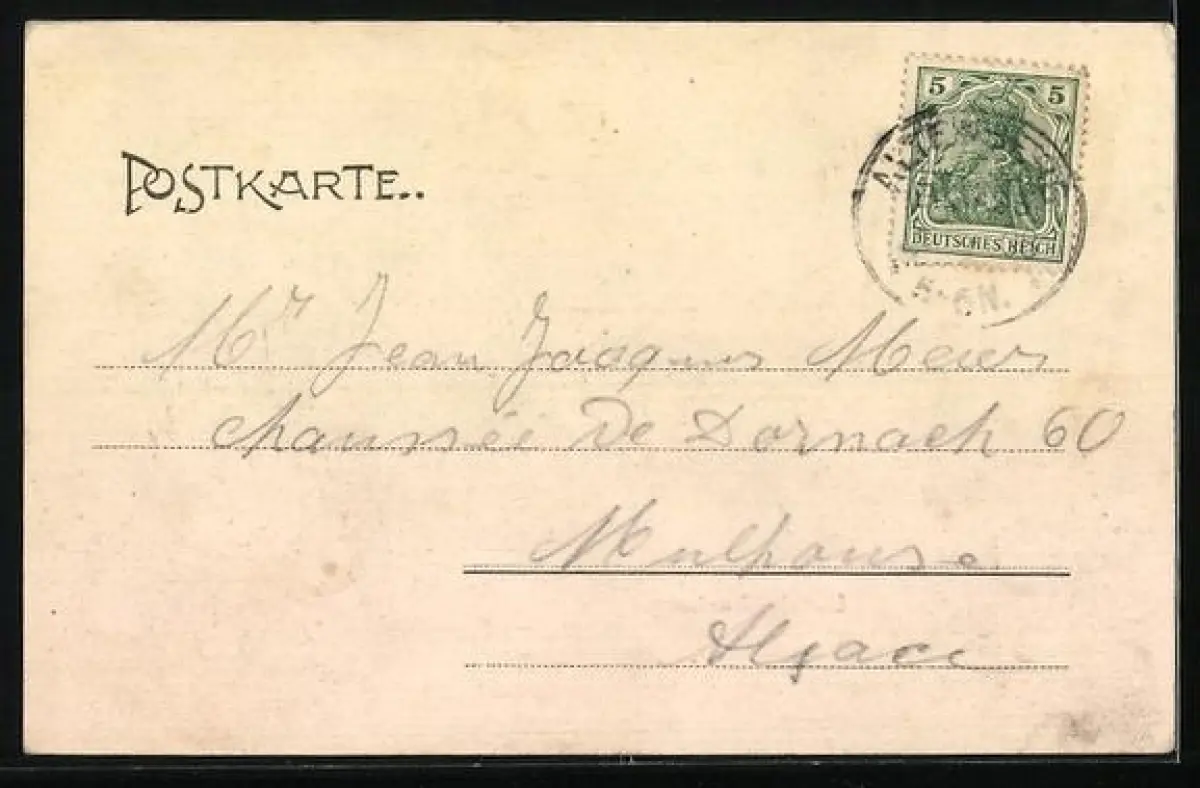 5 5
DEUTSCHES REICH
5-6N.
POSTKARTE..
Mr Jean Jacques Meier
chaussée de Dornach 60
Mulhouse
Alsace